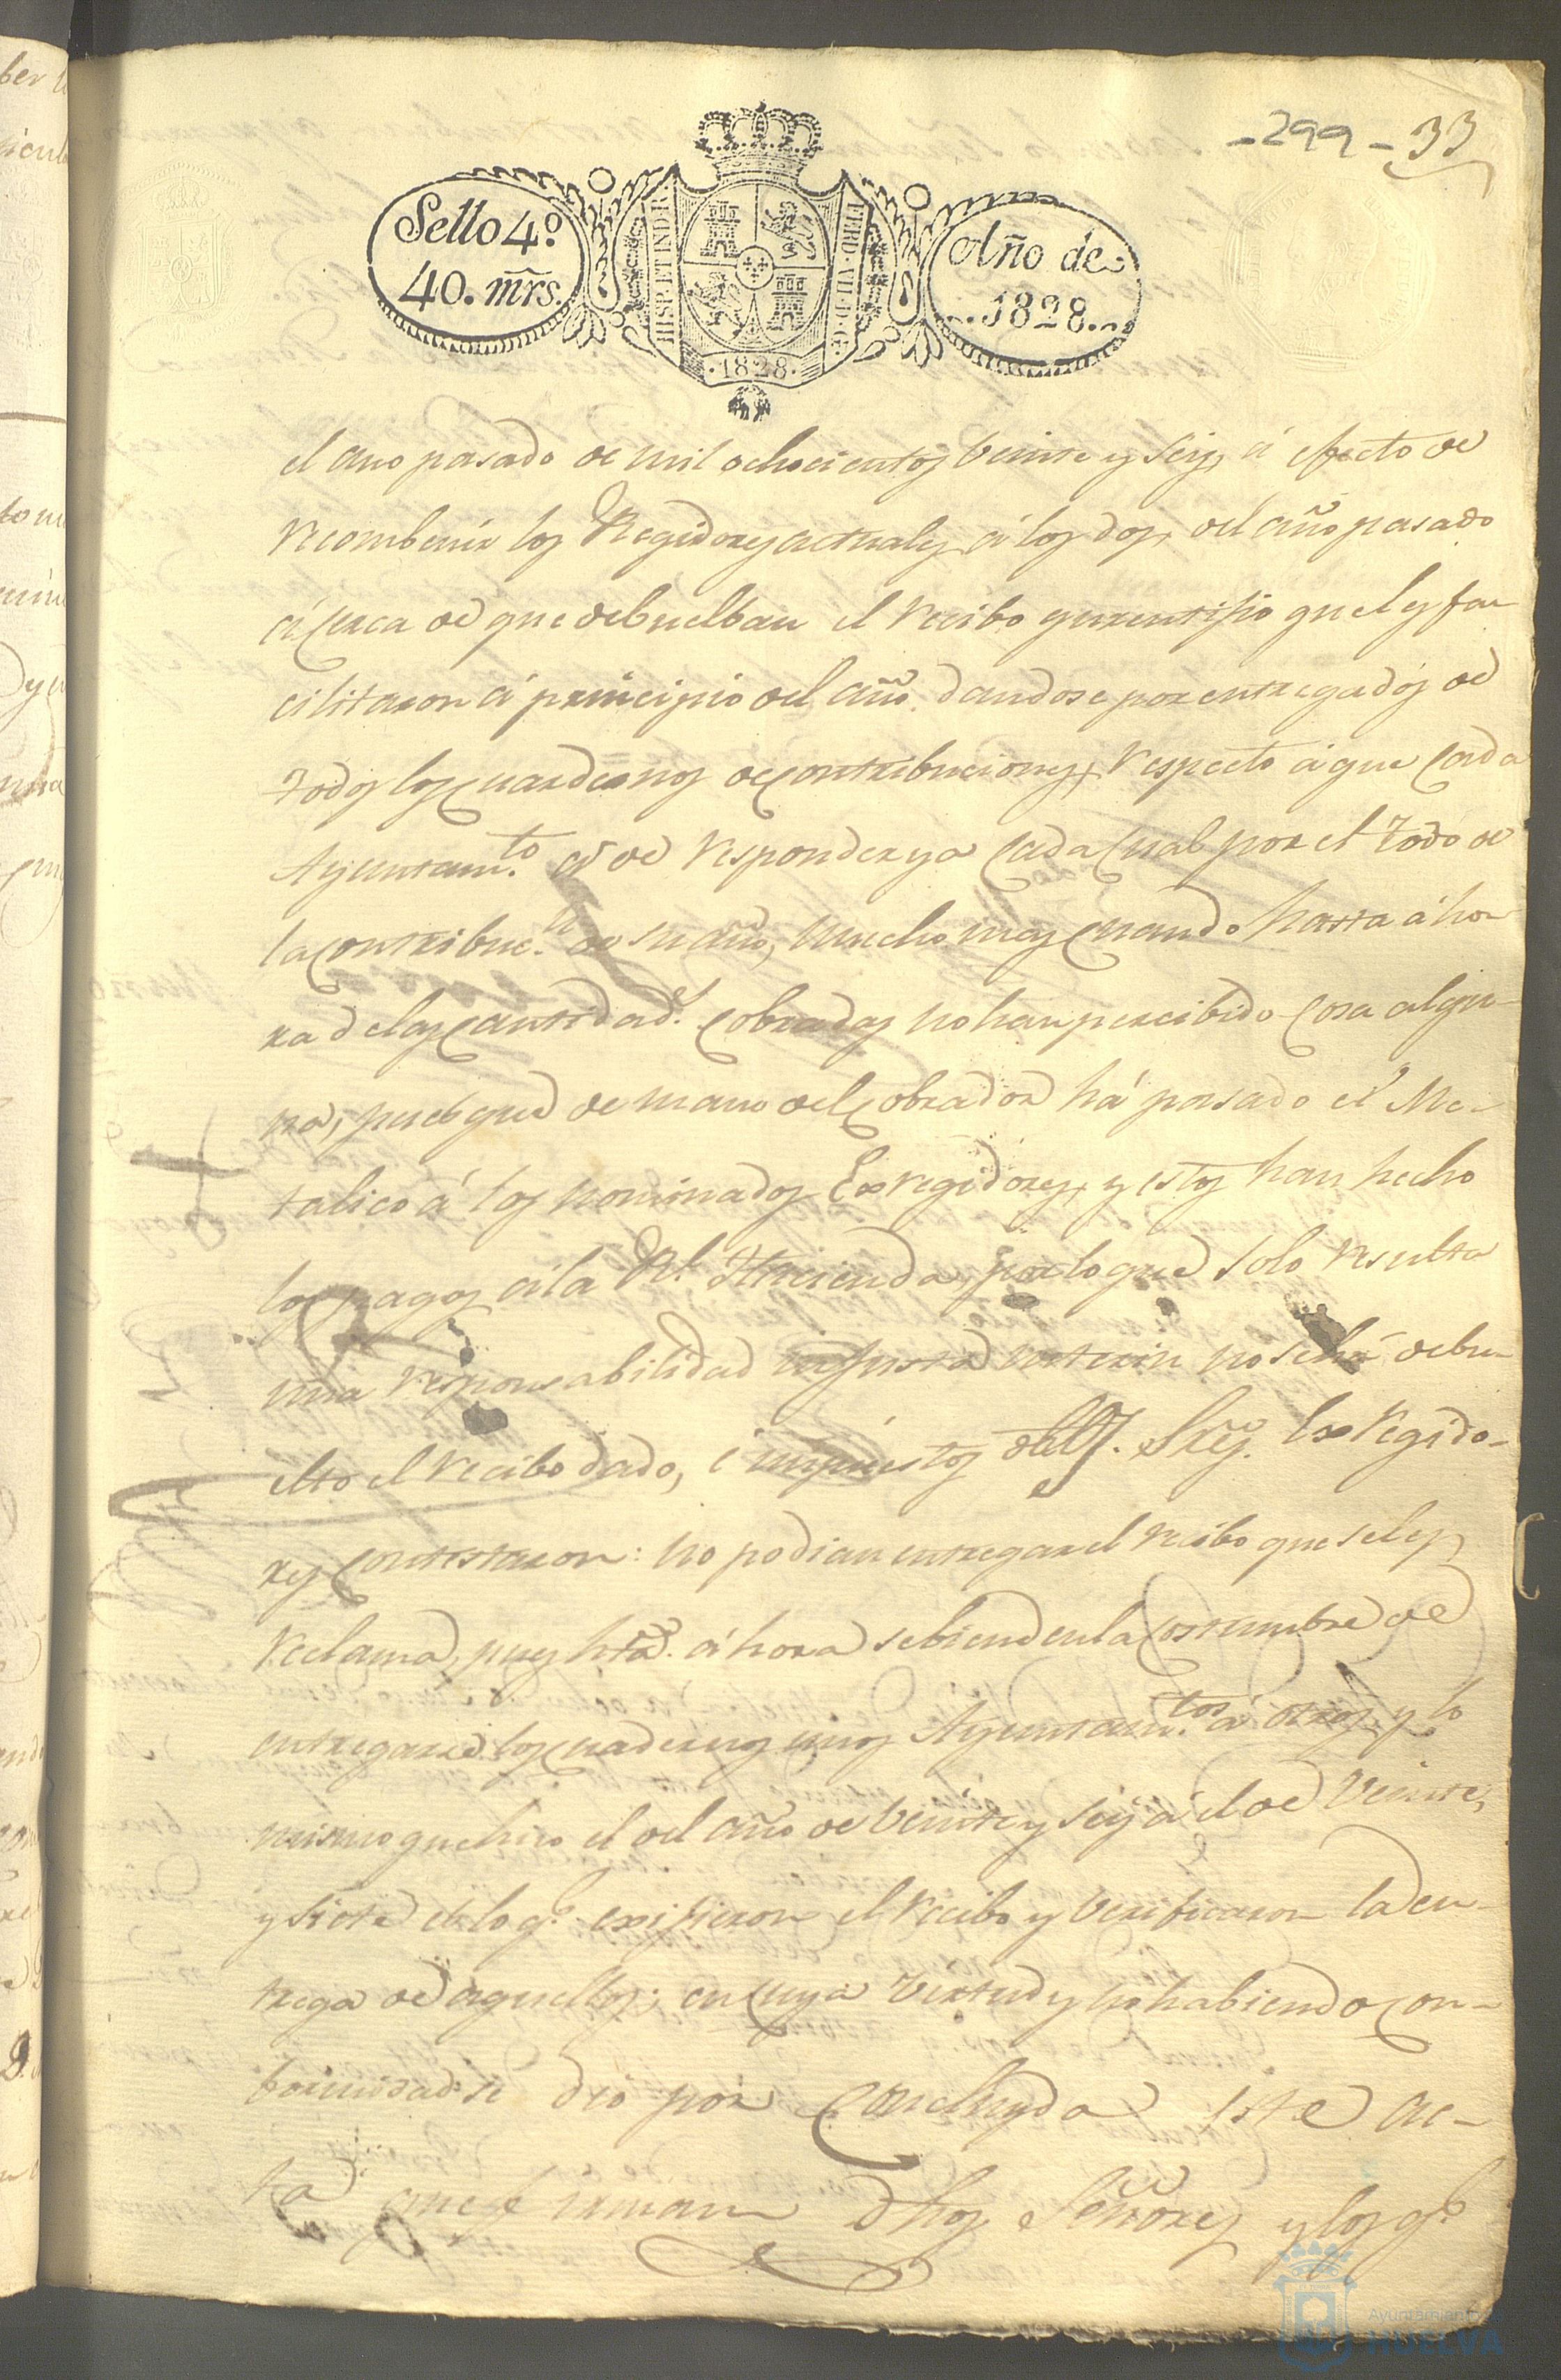 -299-33
Sello 4.º
40. mr̃s.
HISP. ET IND. R.
FERD. VII. D. G.
·1828·
Año de
1828.
el ano pasado de mil ochocientos veinte y seis, á efecto de
recombenir los Regidores actuales á los dos, del año pasado
á cerca de que debuelban el recibo que les fa-
cilitaron á principio del año dandose por entregados de
todos los cuardernos de contribuciones, respecto á que cada
Ayuntam.to á de responder ya cada cual por el todo de
la contribuc.n de su año, mucho mas cuando hasta áho-
ra de las cantidad.s cobradas no han percibido cosa algu-
na, pues que de mano del cobrador há pasado el Me-
talico á los nominados Exregidores, y estos han hecho
los pagos á la R.l Hacienda, por lo que solo resulta
una responsabilidad injusta interin no se há debu-
elto el recibo dado, é impuestos dhos. Sres. Exregido-
res contestaron: no podian entregar el recibo que se les
reclama, pues hta. áhora sebiendo en la costumbre de
entregarse los cuadernos unos Ayuntam.tos á otros, y lo
mismo que hizo el del año de veinte y seis á el de veinte,
y siete de lo q.e exijieron el recibo y verificaron la en-
trega de aquellos; en cuya virtud y no habiendo con-
formidad se dió por concluyda este ac-
ta que firman dhos Señores y los q.e
Ayuntamiento de
HUELVA